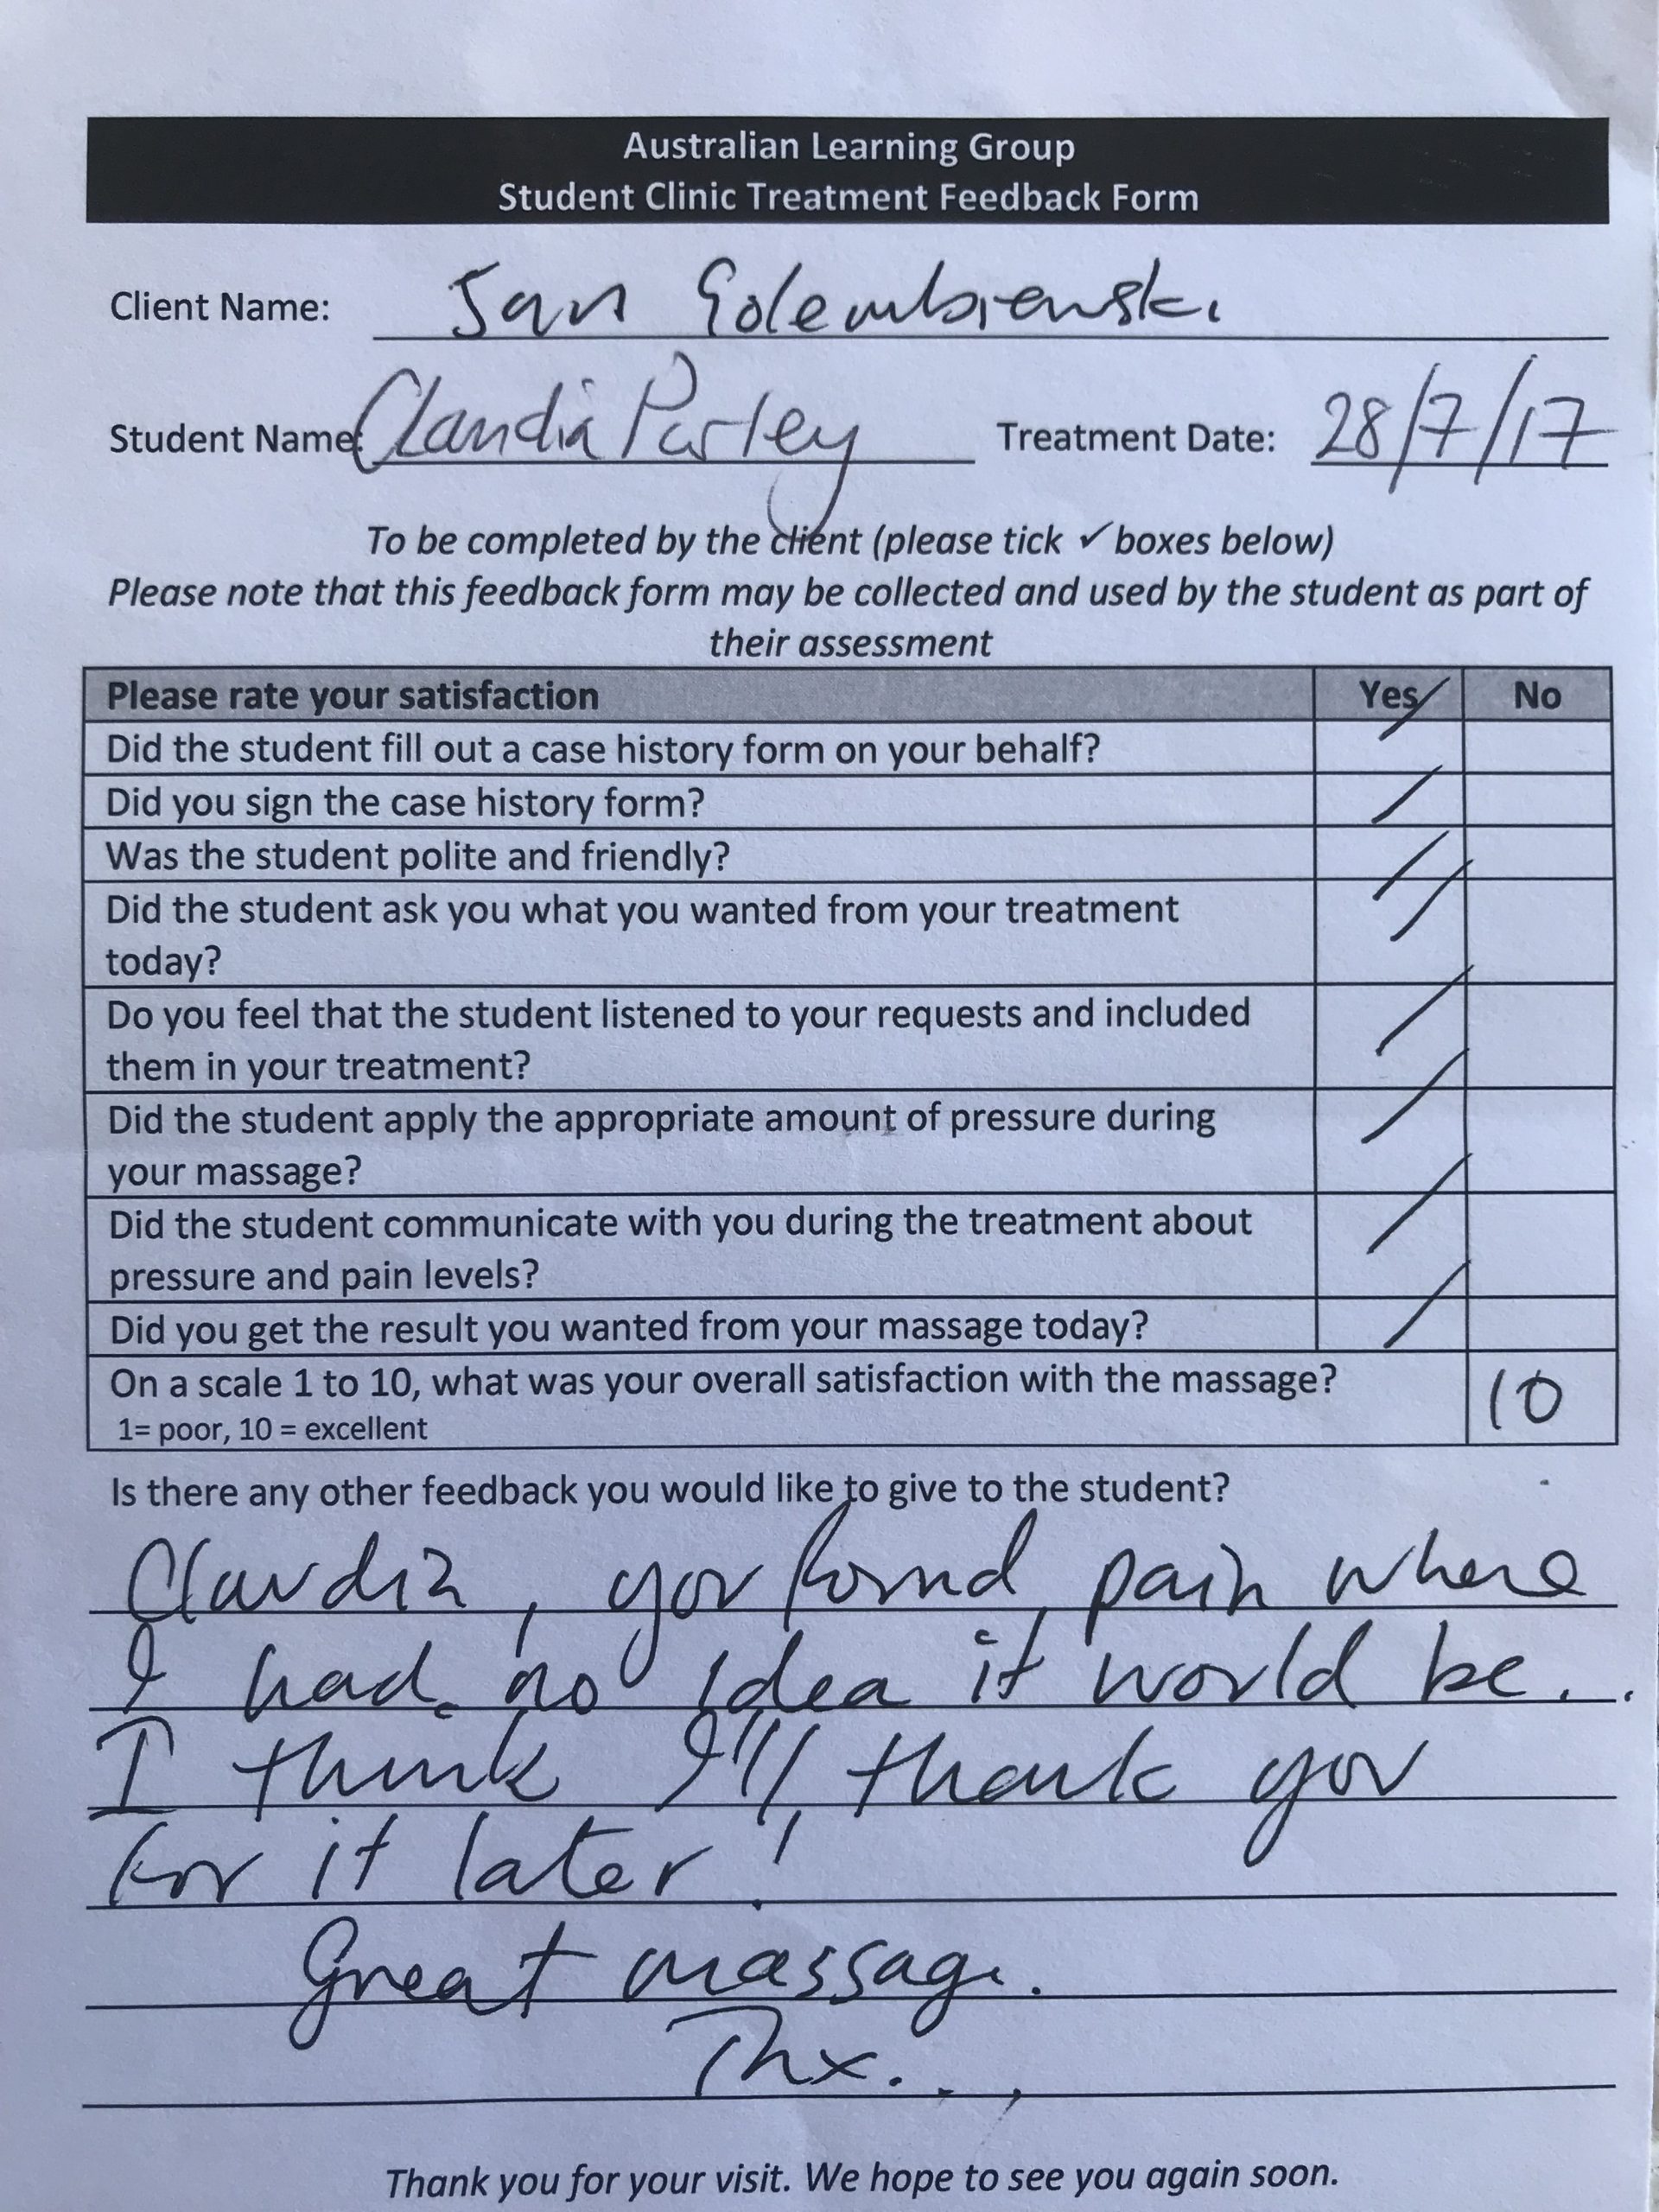 Australian Learning Group
Student Clinic Treatment Feedback Form
Client Name: Jan Golembiewski
Student Name: Claudia Parley Treatment Date: 28/7/17
To be completed by the client (please tick ✓ boxes below)
Please note that this feedback form may be collected and used by the student as part of
their assessment
Please rate your satisfaction Yes No
Did the student fill out a case history form on your behalf? /
Did you sign the case history form? /
Was the student polite and friendly? /
Did the student ask you what you wanted from your treatment /
today?
Do you feel that the student listened to your requests and included /
them in your treatment?
Did the student apply the appropriate amount of pressure during /
your massage?
Did the student communicate with you during the treatment about /
pressure and pain levels?
Did you get the result you wanted from your massage today? /
On a scale 1 to 10, what was your overall satisfaction with the massage? 10
1= poor, 10 = excellent
Is there any other feedback you would like to give to the student?
Claudia, you found pain where
I had no idea it would be...
I think I'll thank you
for it later!
Great massage.
Thx...
Thank you for your visit. We hope to see you again soon.